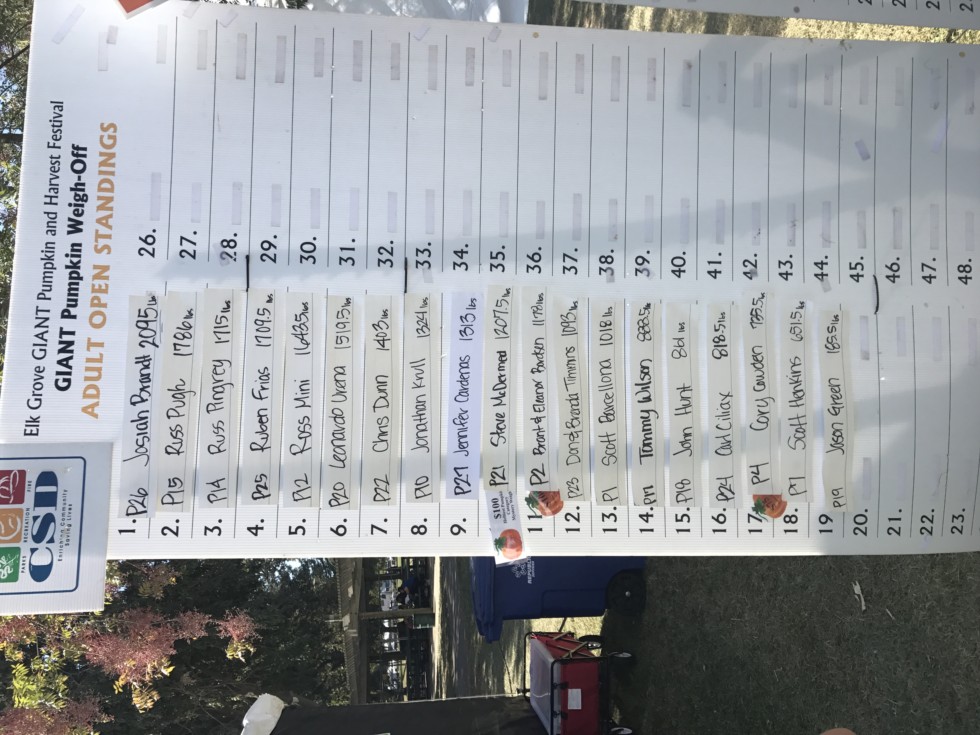 Elk Grove GIANT Pumpkin and Harvest Festival
GIANT Pumpkin Weigh-Off
ADULT OPEN STANDINGS
PARKS RECREATION FIRE
CSD
Enriching Community
Saving Lives
1. P26 Josiah Brandt 2095 lbs
2. P15 Russ Pugh 1786 lbs
3. P14 Russ Pingrey 1715 lbs
4. P25 Ruben Frias 1709.5 lbs
5. P12 Ross Mini 1643.5 lbs
6. P20 Leonardo Urena 1519.5 lbs
7. P22 Chris Dunn 1413 lbs
8. P10 Jonathan Krull 1324 lbs
9. P27 Jennifer Cardenas 1313 lbs
$100
P21 Steve McDermed 1207.5 lbs
11. P2 Brant & Eleanor Bordsen 1178 lbs
12. P23 Doug & Branda Timmins 1093 lbs
13. P1 Scott Barcellona 1018 lbs
14. P17 Tammy Wilson 888.5 lbs
15. P18 John Hunt 861 lbs
16. P24 Carl Ciliax 818.5 lbs
17. P4 Cory Cowden 785.5 lbs
18. P7 Scott Hankins 651.5 lbs
19 P19 Jason Green 185.5 lbs
20.
21.
22.
23.
26.
27.
28.
29.
30.
31.
32.
33.
34.
35.
36.
37.
38.
39.
40.
41.
42.
43.
44.
45.
46.
47.
48.